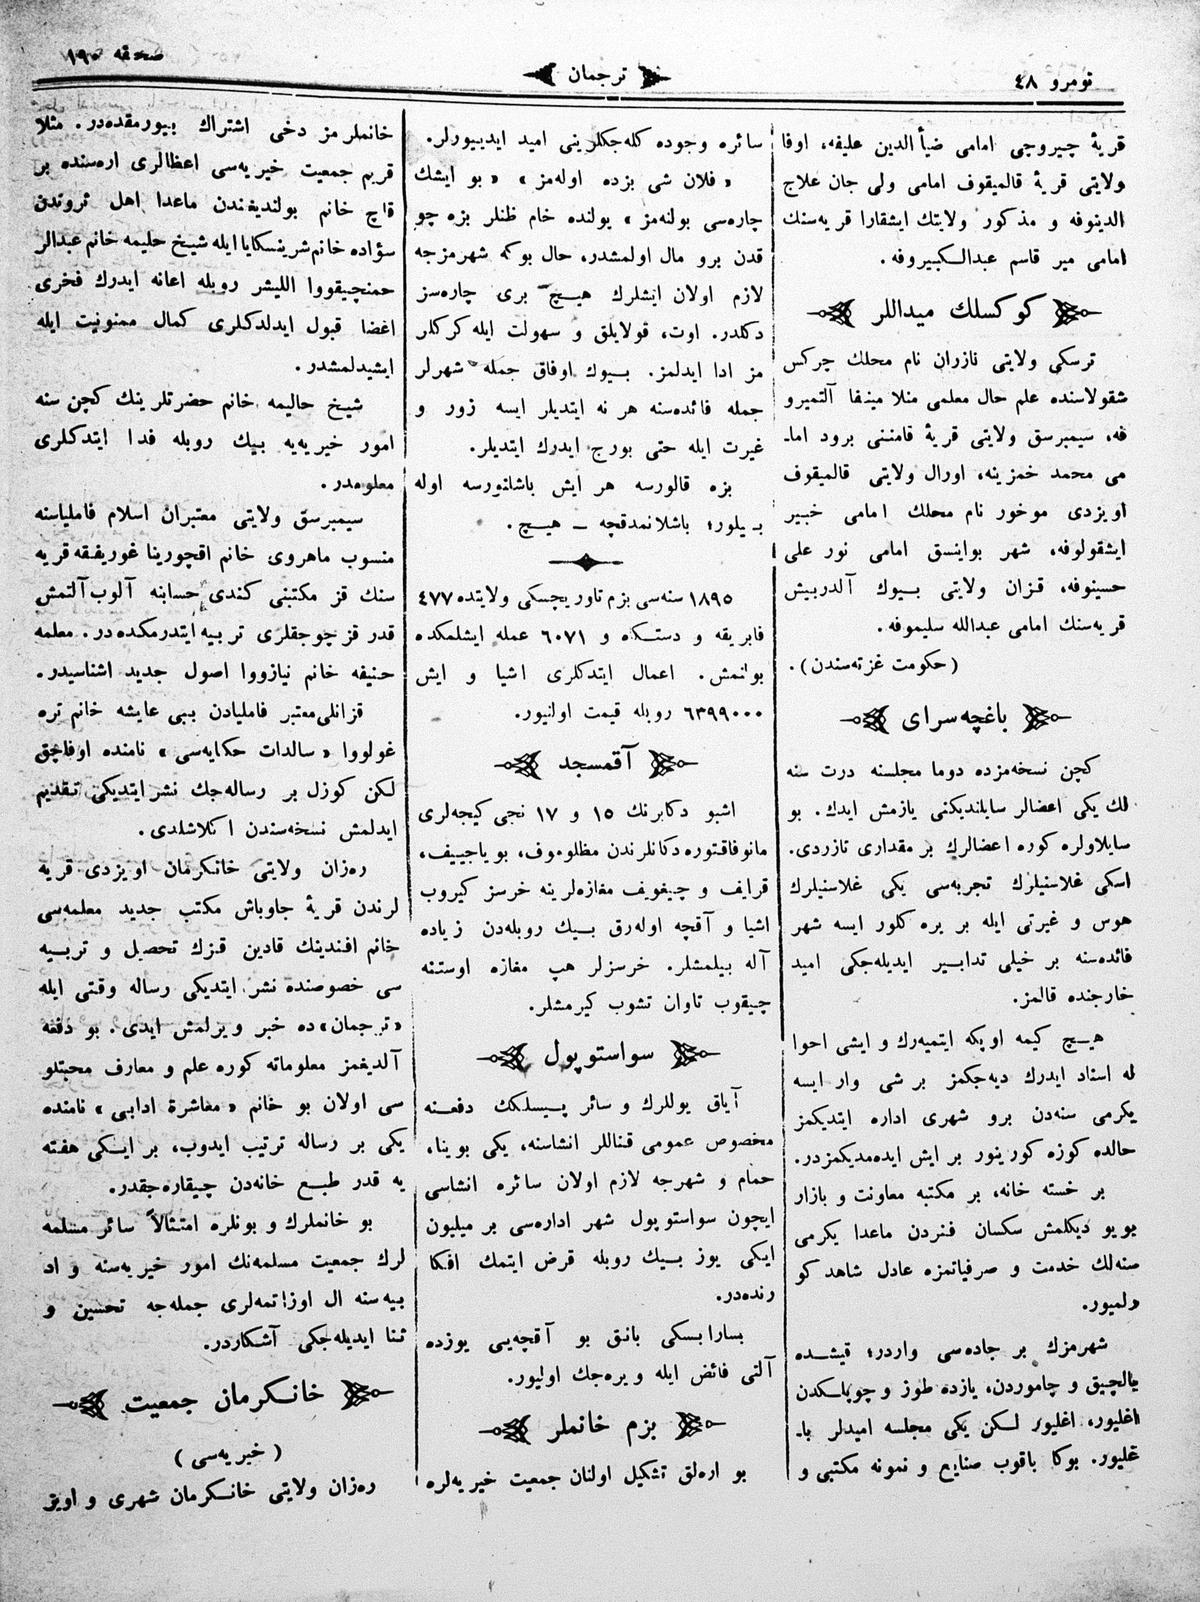 نومرو ٤٨
ترجمان
صحيفه ١٩٠
قريۀ چيروچى امامى ضيأ الدين عليفه، اوفا
ولايتى قريۀ قالميقوف امامى ولى جان علاج
الدينوفه و مذكور ولايتك ايشقارا قريه‌سنك
امامى مير قاسم عبدالكبيروفه.
كوكسلك ميداللر
ترسكى ولايتى نازران نام محلك چركس
شقولاسنده علم حال معلمى منلا مينفا آلتميرو
فه، سيمبرسق ولايتى قريۀ قامننى برود اما-
مى محمد خمزينه، اورال ولايتى قالميقوف
اويزدى موخور نام محلك امامى خبير
ايشقولوفه، شهر بوانسق امامى نور على
حسينوفه، قزان ولايتى بيوك آلدربيش
قريه‌سنك امامى عبدالله سليموفه.
(حكومت غزته‌سندن).
باغچه‌سراى
كچن نسخه‌مزده دوما مجلسنه درت سنه
لك يكى اعضالر سايلنديكنى يازمش ايدك. بو
سايلاولره كوره اعضالرك بر مقدارى تازردى.
اسكى غلاسنيلرك تجربه‌سى يكى غلاسنيلرك
هوس و غيرتى ايله بر يره كلور ايسه شهر
فائده‌سنه بر خيلى تدابير ايديله‌جكى اميد
خارجنده قالمز.
هيچ كيمه اوپكه ايتميه‌رك و ايشى احوا
له اسناد ايدرك ديه‌جكمز بر شى وار ايسه
يكرمى سنه‌دن برو شهرى اداره ايتديكمز
حالده كوزه كورينور بر ايش ايده‌مديكمزدر.
بر خسته خانه، بر مكتبه معاونت و بازار
بويو ديكلمش سكسان فنردن ماعدا يكرمى
سنه‌لك خدمت و صرفياتمزه عادل شاهد كو
رلميور.
شهرمزك بر جاده‌سى واردر؛ قيشده
بالچيق و چاموردن، يازده طوز و چوپلكدن
اغليور، اغليور لكن يكى مجلسه اميدلر با-
غليور. بوكا باقوب صنايع و نمونه مكتبى و
سائره وجوده كله‌جكلرينى اميد ايدييورلر.
« فلان شى بزده اوله‌مز » « بو ايشك
چاره‌سى بولنه‌مز » يولنده خام ظنلر بزه چو
قدن برو مال اولمشدر، حال بوكه شهرمزجه
لازم اولان ايشلرك هيچ برى چاره‌سز
دكلدر. اوت، قولايلق و سهولت ايله كركلر
مز ادا ايدلمز. بيوك اوفاق جمله شهرلر
جمله فائده‌سنه هر نه ايتديلر ايسه زور و
غيرت ايله حتى بورج ايدرك ايتديلر.
بزه قالورسه هر ايش باشلنورسه اوله
بيلور؛ باشلانمدقچه — هيچ.
١٨٩٥ سنه‌سى بزم تاوريچسكى ولايتده ٤٧٧
فابريقه و دستكاه و ٦٠٧١ عمله ايشلمكده
بولنمش. اعمال ايتدكلرى اشيا و ايش
٦٣٩٩٠٠٠ روبله قيمت اولنيور.
آقمسجد
اشبو دكابرنك ١٥ و ١٧ نجى كيجه‌لرى
مانوفاقتوره دكانلرندن مظلوموف، بوياجييف،
قرايف و چيغويف مغازه‌لرينه خرسز كيروب
اشيا و آقچه اوله‌رق بيك روبله‌دن زياده
آله بيلمشلر. خرسزلر هپ مغازه اوستنه
چيقوب تاوان تشوب كيرمشلر.
سواستوپول
آياق يوللرك و سائر پيسلكك دفعنه
مخصوص عمومى قناللر انشاسنه، يكى بوينا،
حمام و شهرجه لازم اولان سائره انشاسى
ايچون سواستوپول شهر اداره‌سى بر ميليون
ايكى يوز بيك روبله قرض ايتمك افكا
رنده‌در.
بسارابسكى بانق بو آقچه‌يى يوزده
آلتى فائض ايله ويره‌جك اوليور.
بزم خانملر
بو اره‌لق تشكيل اولنان جمعيت خيريه‌لره
خانملرمز دخى اشتراك بيورمقده‌در. مثلا
قريم جمعيت خيريه‌سى اعظالرى اره‌سنده بر
قاچ خانم بولنديغندن ماعدا اهل ثروتدن
سؤاده خانم شرينسكايا ايله شيخ حليمه خانم عبدالر
حمنچيقووا الليشر روبله اعانه ايدرك فخرى
اعضا قبول ايدلدكلرى كمال ممنونيت ايله
ايشيدلمشدر.
شيخ حاليمه خانم حضرتلرينك كچن سنه
امور خيريه‌يه بيك روبله فدا ايتدكلرى
معلومدر.
سيمبرسق ولايتى معتبران اسلام فاملياسنه
منسوب ماهروى خانم اقچورينا غورييفقه قريه
سنك قز مكتبنى كندى حسابنه آلوب آلتمش
قدر قز چوجقلرى تربيه ايتدرمكده‌در. معلمه
حنيفه خانم نيازووا اصول جديد اشناسيدر.
قزانلى معتبر فامليادن بيى عايشه خانم تره
غولووا « سالدات حكايه‌سى » نامنده اوفاجق
لكن كوزل بر رساله‌جك نشر ايتديكى تقديم
ايدلمش نسخه‌سندن اكلاشلدى.
ره‌زان ولايتى خانكرمان اويزدى قريه
لرندن قريۀ جاوباش مكتب جديد معلمه‌سى
خانم افندينك قادين قزك تحصيل و تربيه
سى خصوصنده نشر ايتديكى رساله وقتى ايله
«ترجمان»ده خبر ويرلمش ايدى. بو دفعه
آلديغمز معلوماته كوره علم و معارف محبتلو
سى اولان بو خانم « معاشرة ادابى » نامنده
يكى بر رساله ترتيب ايدوب، بر ايكى هفته
يه قدر طبع خانه‌دن چيقاره‌جقدر.
بو خانملرك و بونلره امتثالاً سائر مسلمه
لرك جمعيت مسلمه‌نك امور خيريه‌سنه و اد
بيه‌سنه ال اوزاتمه‌لرى جمله‌جه تحسين و
ثنا ايديله‌جكى آشكاردر.
خانكرمان جمعيت
( خيريه‌سى )
ره‌زان ولايتى خانكرمان شهرى و اويز